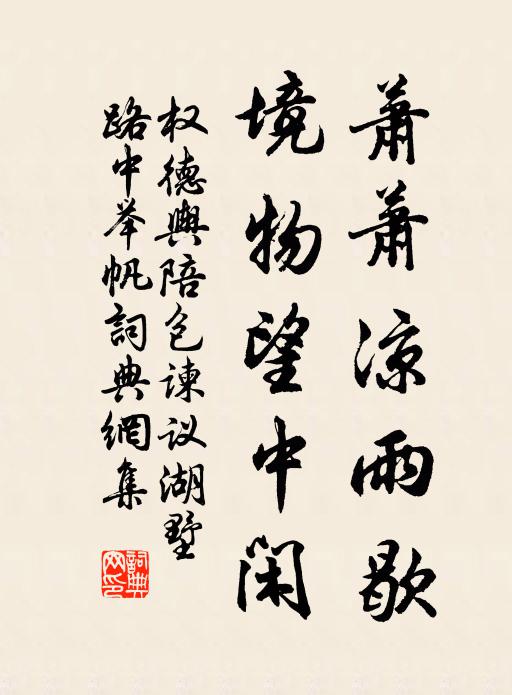 萧萧凉雨歇
境物望中闲
权德舆陪包谏议湖墅
路中举帆詞典網集
詞典網印